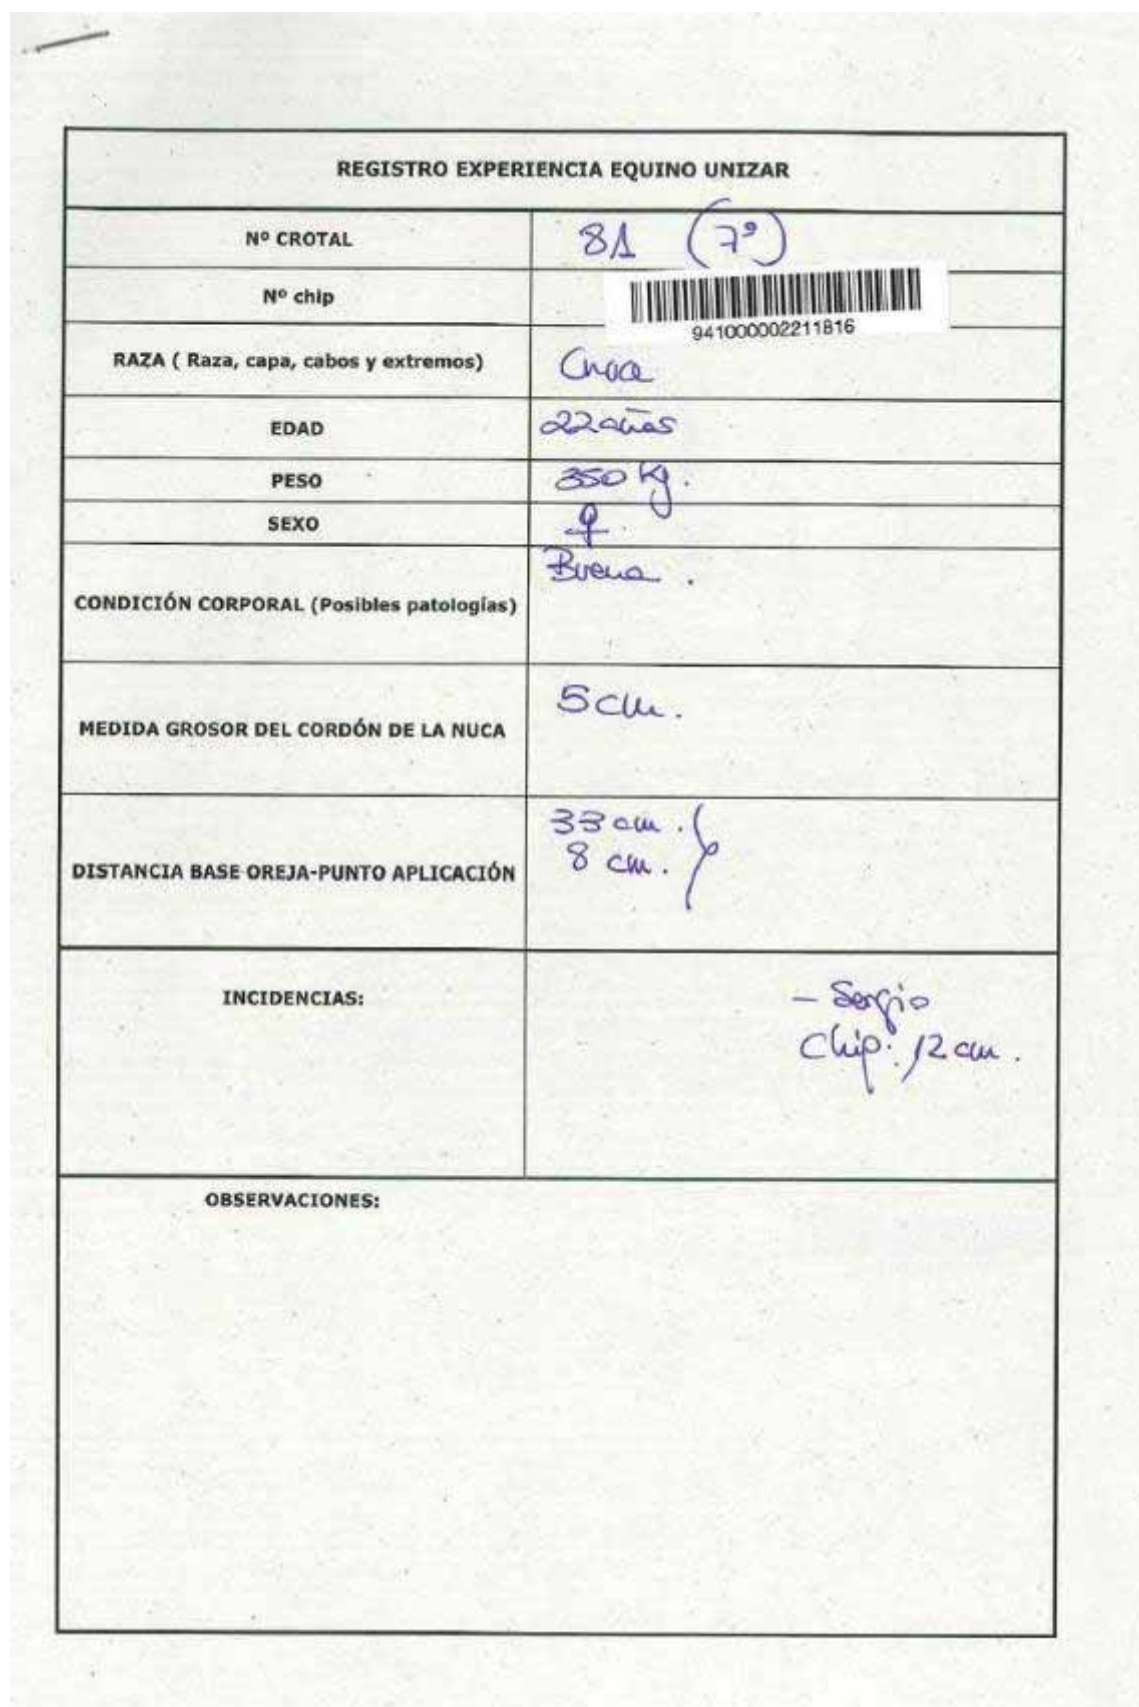 REGISTRO EXPERIENCIA EQUINO UNIZAR
Nº CROTAL 81 (7º)
Nº chip 941000002211816
RAZA ( Raza, capa, cabos y extremos)
EDAD 22 años
PESO 350 Kg.
SEXO ♀
CONDICIÓN CORPORAL (Posibles patologías) Buena .
MEDIDA GROSOR DEL CORDÓN DE LA NUCA 5 cm.
33 cm .
DISTANCIA BASE OREJA-PUNTO APLICACIÓN 8 cm .
INCIDENCIAS: - Sergio
Chip: 12 cm .
OBSERVACIONES: